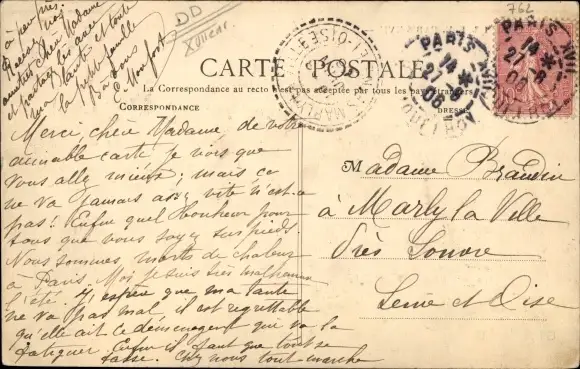 CARTE POSTALE
La Correspondance au recto n'est pas acceptée par tous les pays étrangers
CORRESPONDANCE
ADRESSE
Merci, chère Madame de votre
aimable carte, je vois que
vous allez mieux, mais ça
ne va jamais assez vite n'est-ce
pas! Enfin quel bonheur pour
tous que vous soyez sur pieds
Nous sommes morts de chaleur
à Paris. Moi je suis très malheureuse
l'été. J'espère que ma tante
ne va pas mal, il est regrettable
qu'elle ait ce déménagement qui va la
fatiguer. Enfin il faut que tout se
fasse. Chez nous tout marche
à peu près
amitiés chère Madame
et partagez les avec
tante et toute
la petite famille
à vous
C. Monfort
DD
762
PARIS
14
27 8
06
PARIS
14
27 8
06
Madame Brandin
à Marly la Ville
Près Louvre
Seine et Oise